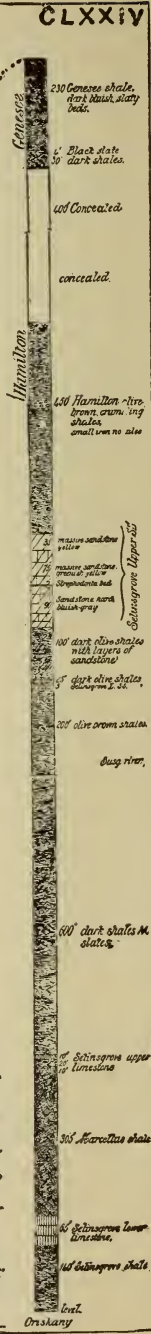 CLXXIV
Genesee
230 Genesee shale,
dark bluish, slaty
beds.
6' Black slate
30' dark shales.
400' Concealed
concealed.
Hamilton
450' Hamilton olive
brown, crumbling
shales,
small iron
massive sandstone
yellow
massive sandstone,
greenish yellow
Strophodonta bed
Sandstone hard,
bluish-gray
Selinsgrove Upper SS
100' dark olive shales
with layers of
sandstone
dark olive shales
Selinsgrove L. SS.
200' olive brown shales.
Susq river,
600' dark shales M.
slates,
10'
20'
10'
Selinsgrove upper
limestone
305' Marcellus shale
65' Selinsgrove lower
limestone,
140' Selinsgrove shale
level
Oriskany